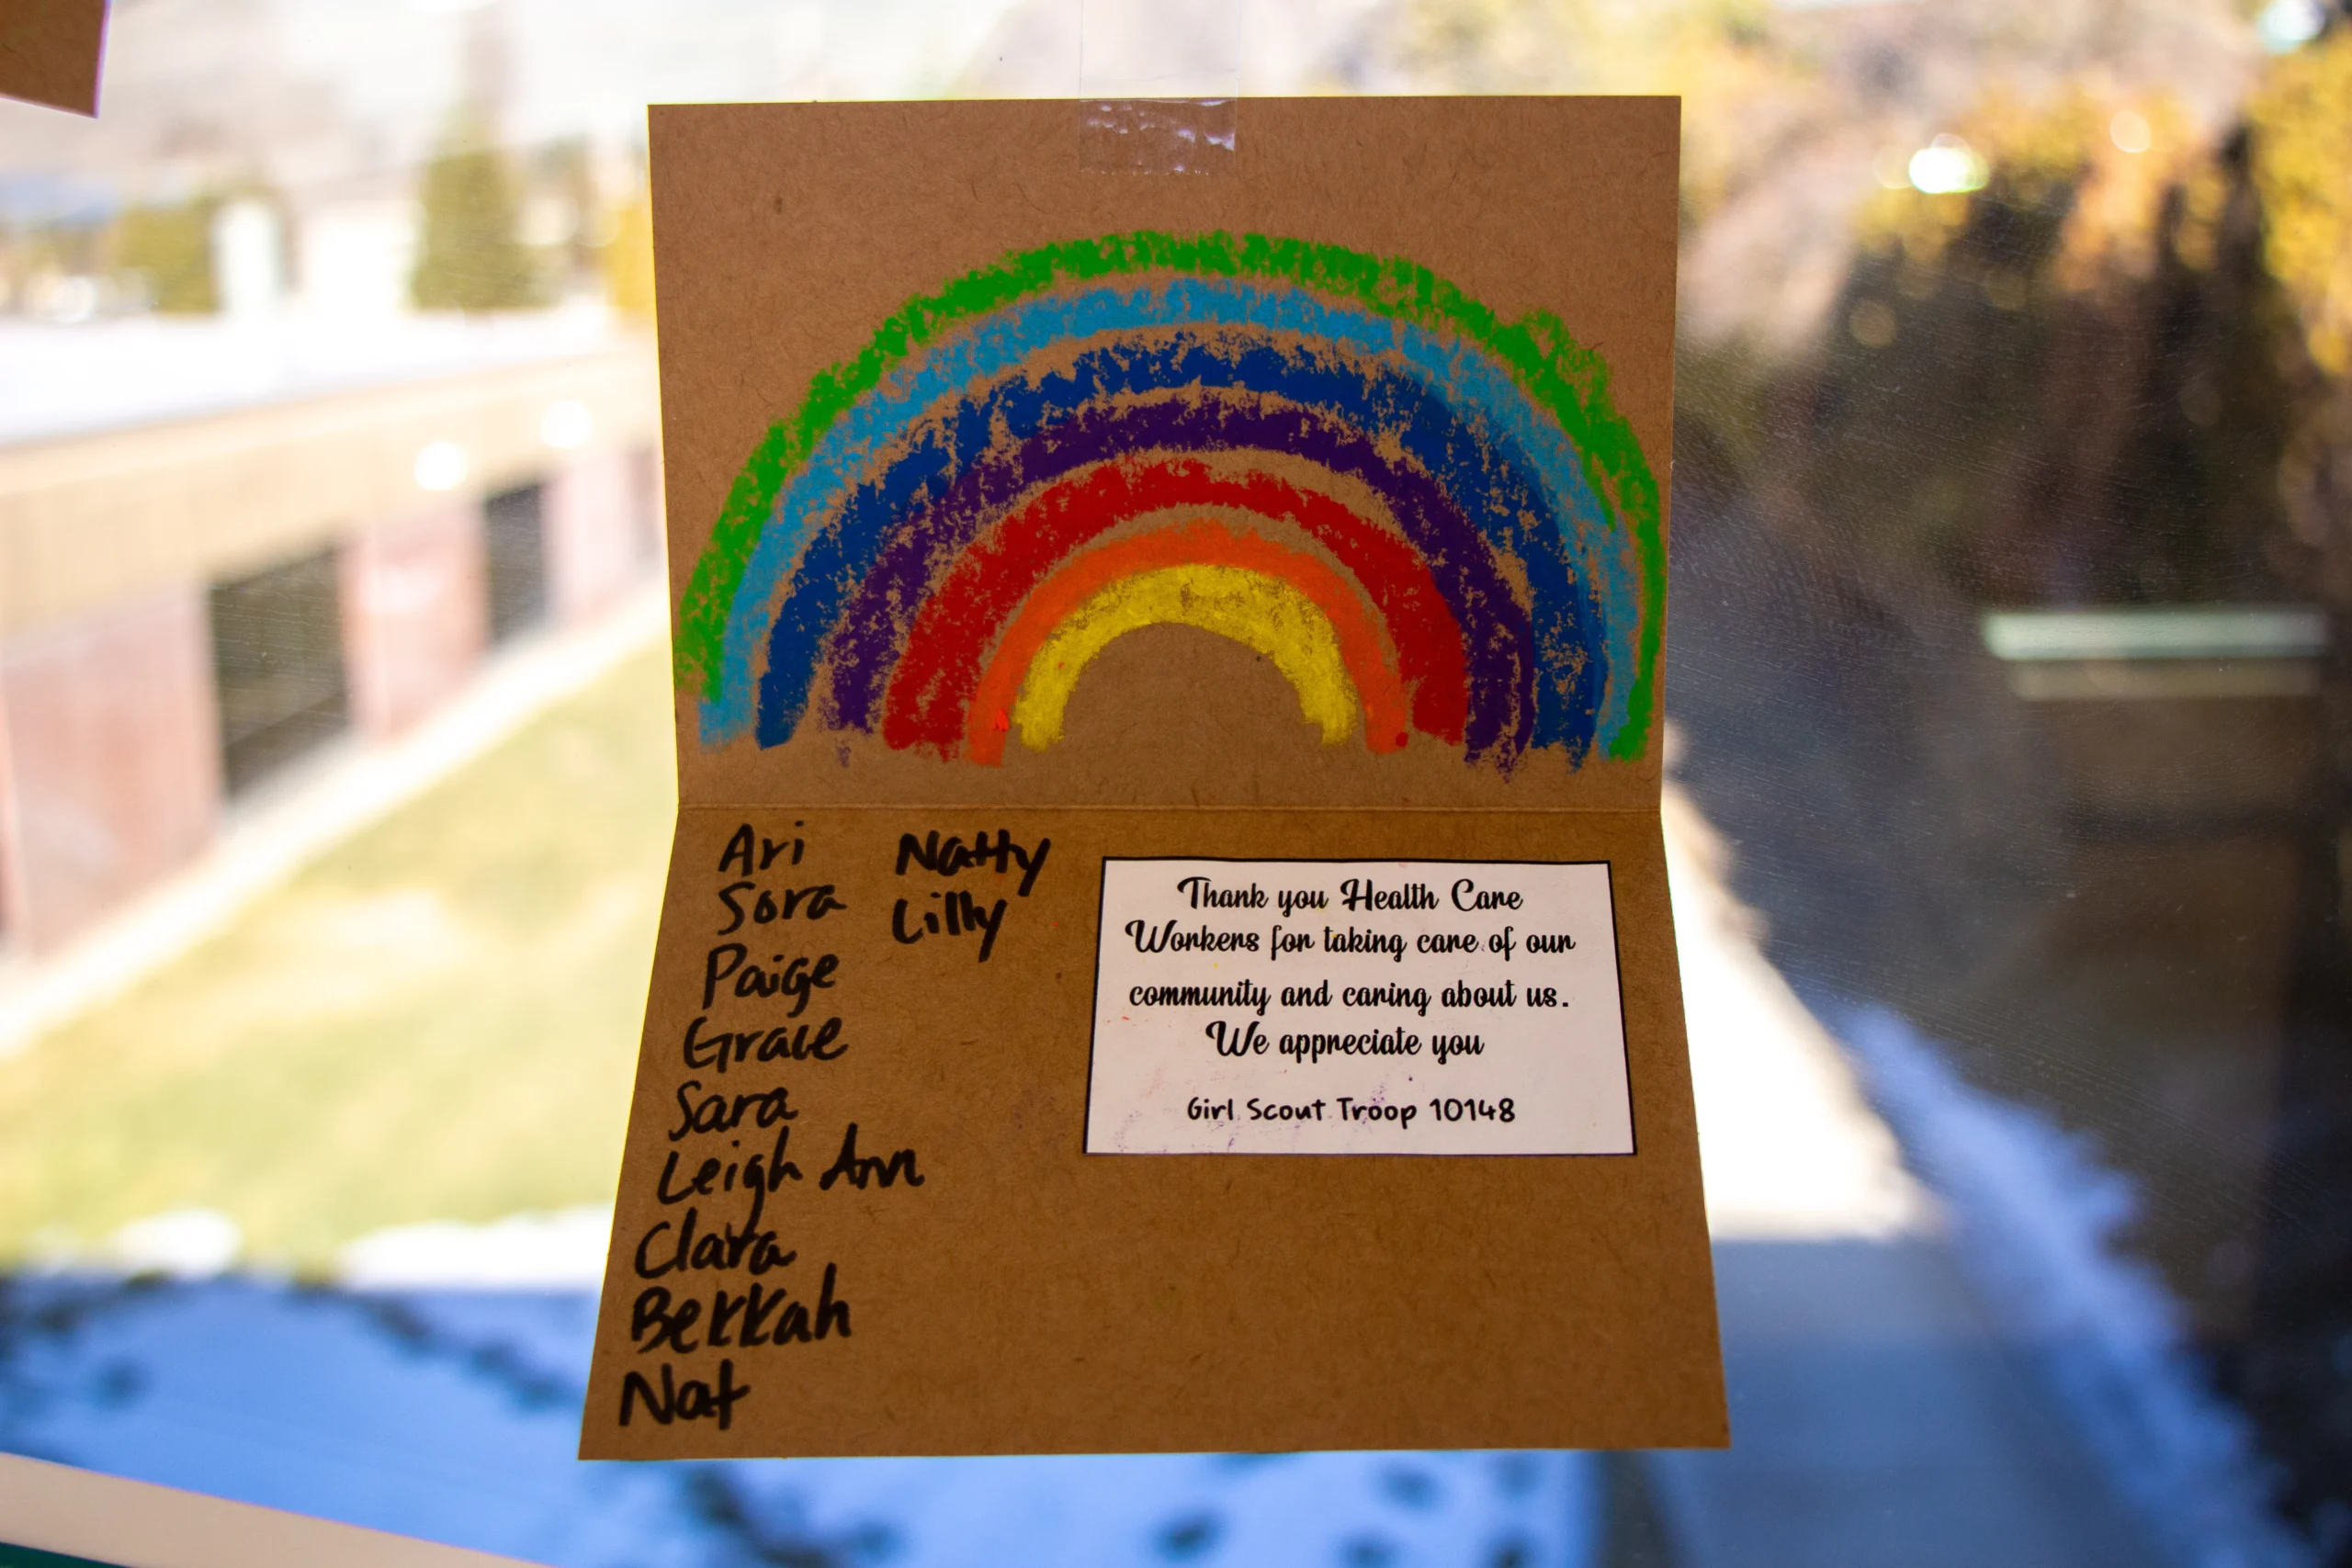 Ari
Sora
Paige
Grace
Sara
Leigh Ann
Clara
Bekkah
Nat
Natty
Lilly
Thank you Health Care
Workers for taking care of our
community and caring about us.
We appreciate you
Girl Scout Troop 10148